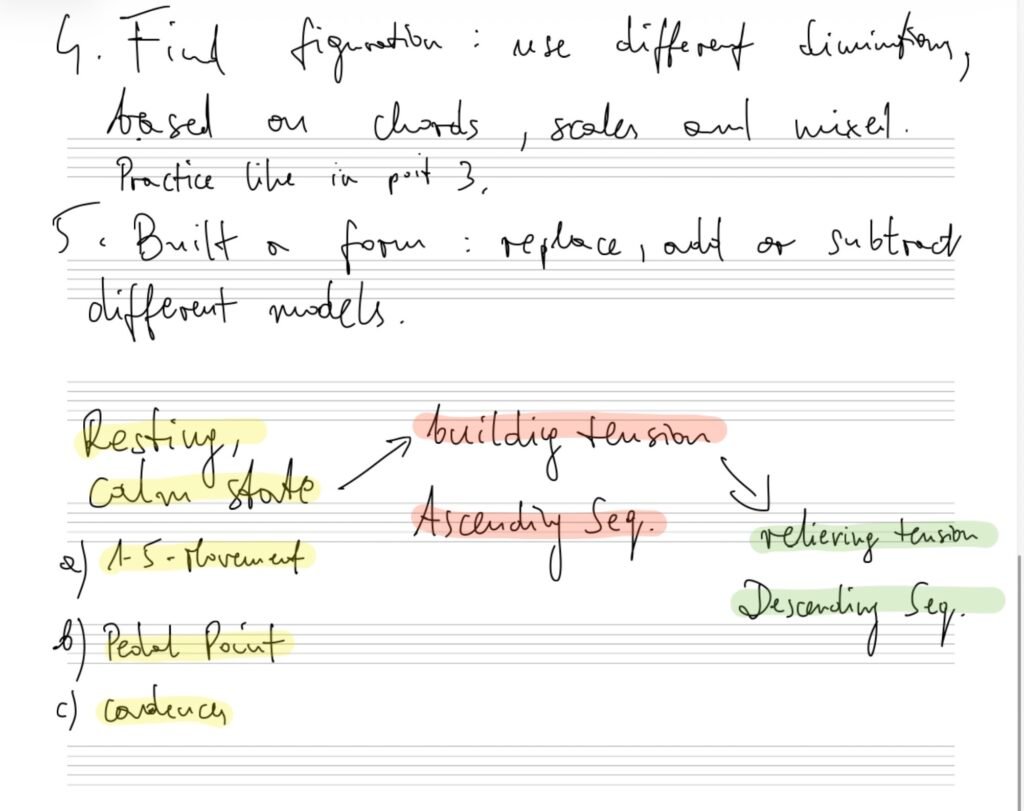 4. Find figuration : use different diminutions,
based on chords, scales and mixed.
Practice like in poit 3.
5. Built a form : replace, add or subtract
different models.
Resting,
calm state
buildig tension
Ascending Seq.
relieving tension
Descending Seq.
a) 1-5-Movement
b) Pedal Point
c) cadences